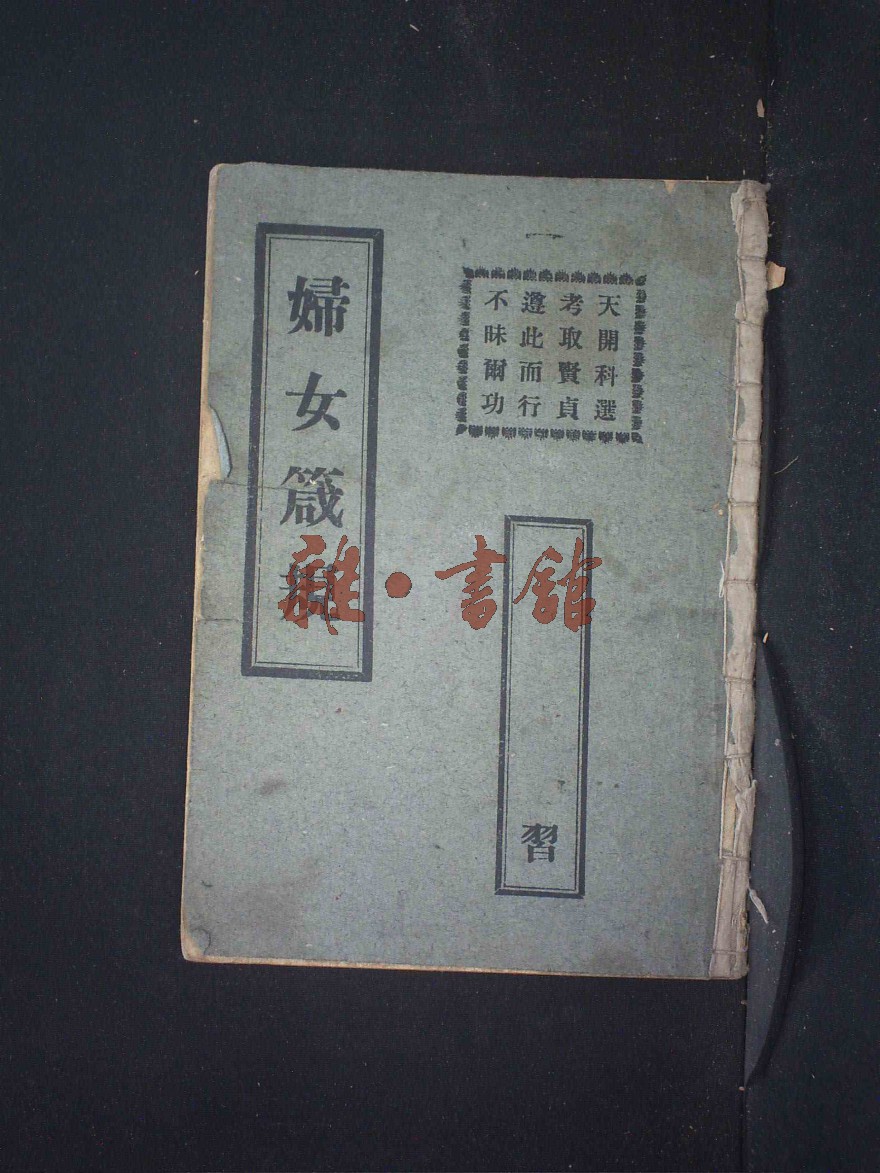 天開科選
考取賢貞
遵此而行
不昧爾功
習
婦女箴
雜·書館